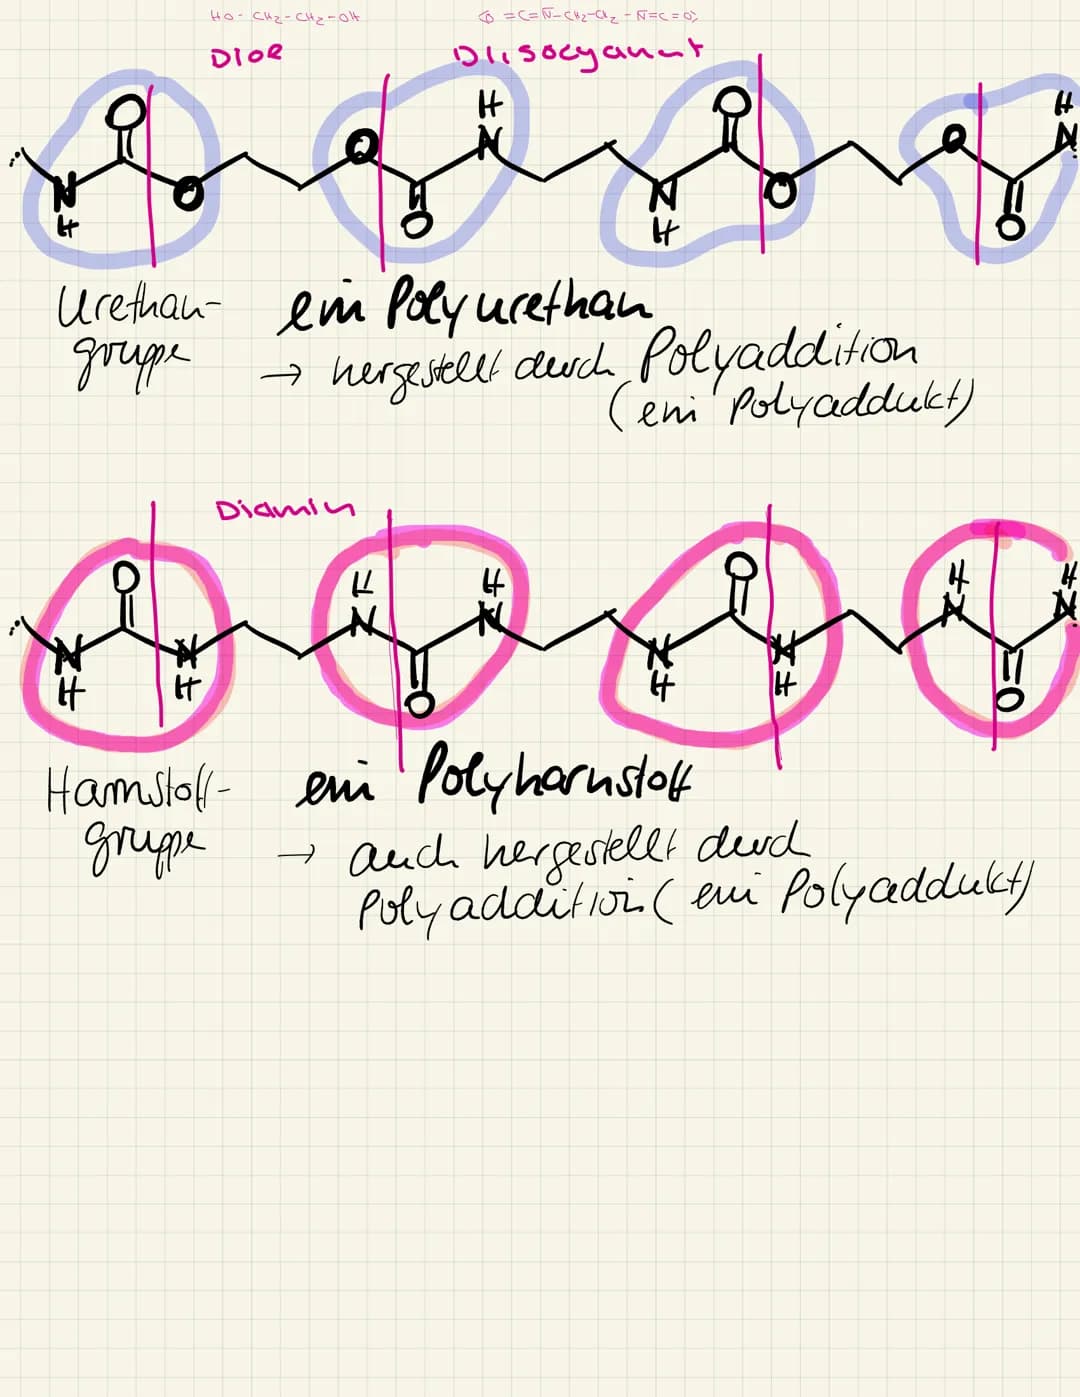 HO - CH2 - CH2 - OH
O = C = N - CH2 - CH2 - N = C = O
Diol
Diisocyanat
O H O H
N O N O N O N
H O H O
Urethan-
gruppe
ein Polyurethan
→ hergestellt durch Polyaddition
(ein Polyaddukt)
Diamin
O H H O H H
N N N N N N N N
H H O H H O
Harnstoff-
gruppe
ein Polyharnstoff
→ auch hergestellt durch
Polyaddition (ein Polyaddukt)